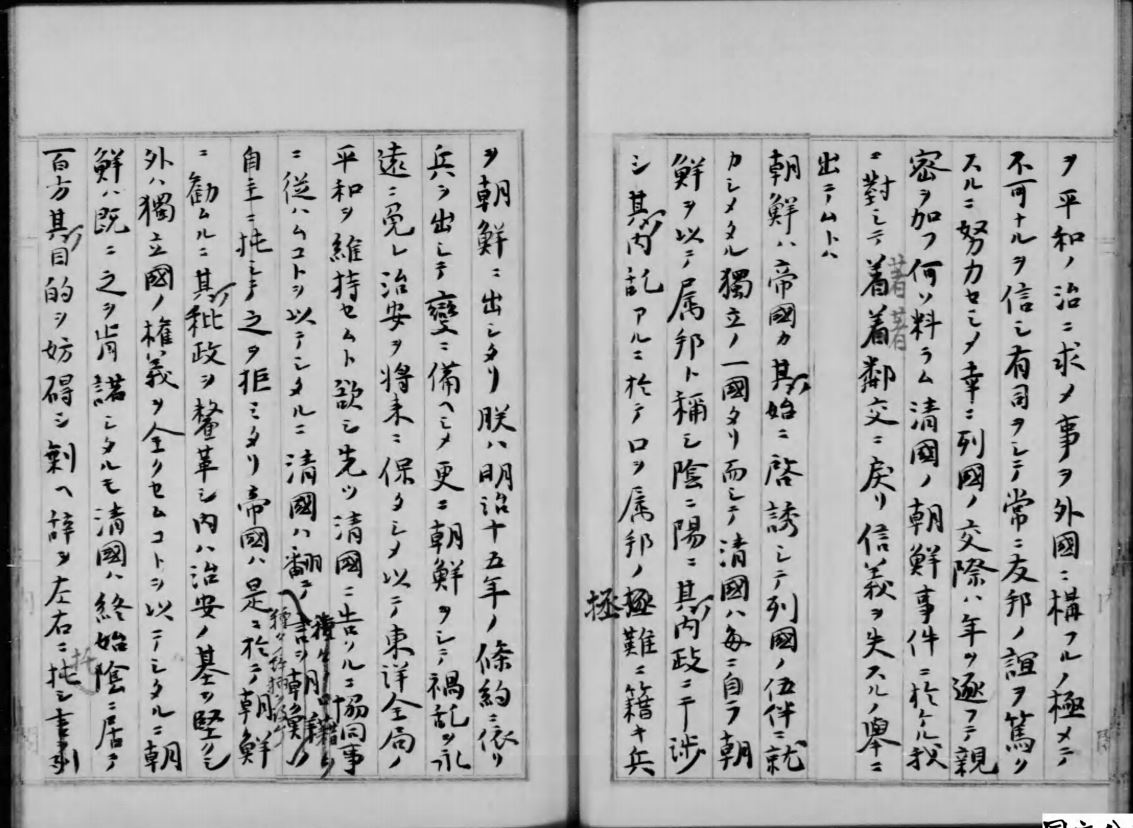 ヲ平和ノ治ニ求メ事ヲ外國ニ構フルノ極メテ
不可ナルヲ信シ有司ヲシテ常ニ友邦ノ誼ヲ篤ク
スルニ努力セシメ幸ニ列國ノ交際ハ年ヲ逐フテ親
密ヲ加フ何ソ料ラム清國ノ朝鮮事件ニ於ケル我
ニ對シテ着着鄰交ニ戻リ信義ヲ失スルノ擧ニ
著著
出テムトハ
朝鮮ハ帝國カ其ノ始ニ啓誘シテ列國ノ伍伴ニ就
カシメタル獨立ノ一國タリ而シテ清國ハ每ニ自ラ朝
鮮ヲ以テ属邦ト稱シ陰ニ陽ニ其ノ内政ニ干涉
シ其ノ内乱アルニ於テ口ヲ属邦ノ拯難ニ籍キ兵
拯
ヲ朝鮮ニ出シタリ朕ハ明治十五年ノ條約ニ依リ
兵ヲ出シテ變ニ備ヘシメ更ニ朝鮮ヲシテ禍乱ヲ永
遠ニ免レ治安ヲ将来ニ保タシメ以テ東洋全局ノ
平和ヲ維持セムト欲シ先ツ清國ニ告クルニ協同事
ニ從ハムコトヲ以テシタルニ清國ハ翻テ
自主ニ托シテ之ヲ拒ミタリ帝國ハ是ニ於テ朝鮮
ニ勸ムルニ其ノ秕政ヲ釐革シ内ハ治安ノ基ヲ堅クシ
外ハ獨立國ノ權義ヲ全クセムコトヲ以テシタルニ朝
鮮ハ既ニ之ヲ肯諾シタルモ清國ハ終始陰ニ居テ
百方其ノ目的ヲ妨碍シ剰ヘ辞ヲ左右ニ托シ